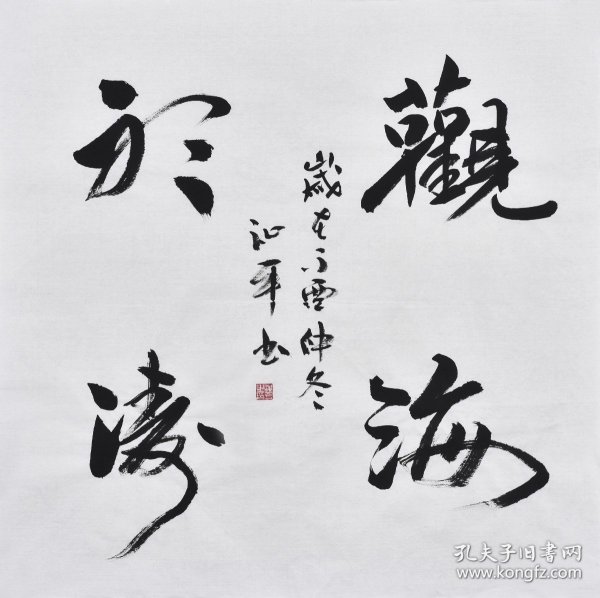 觀海
聽濤
歲在丁酉仲冬
書
孔夫子旧書网
www.kongfz.com